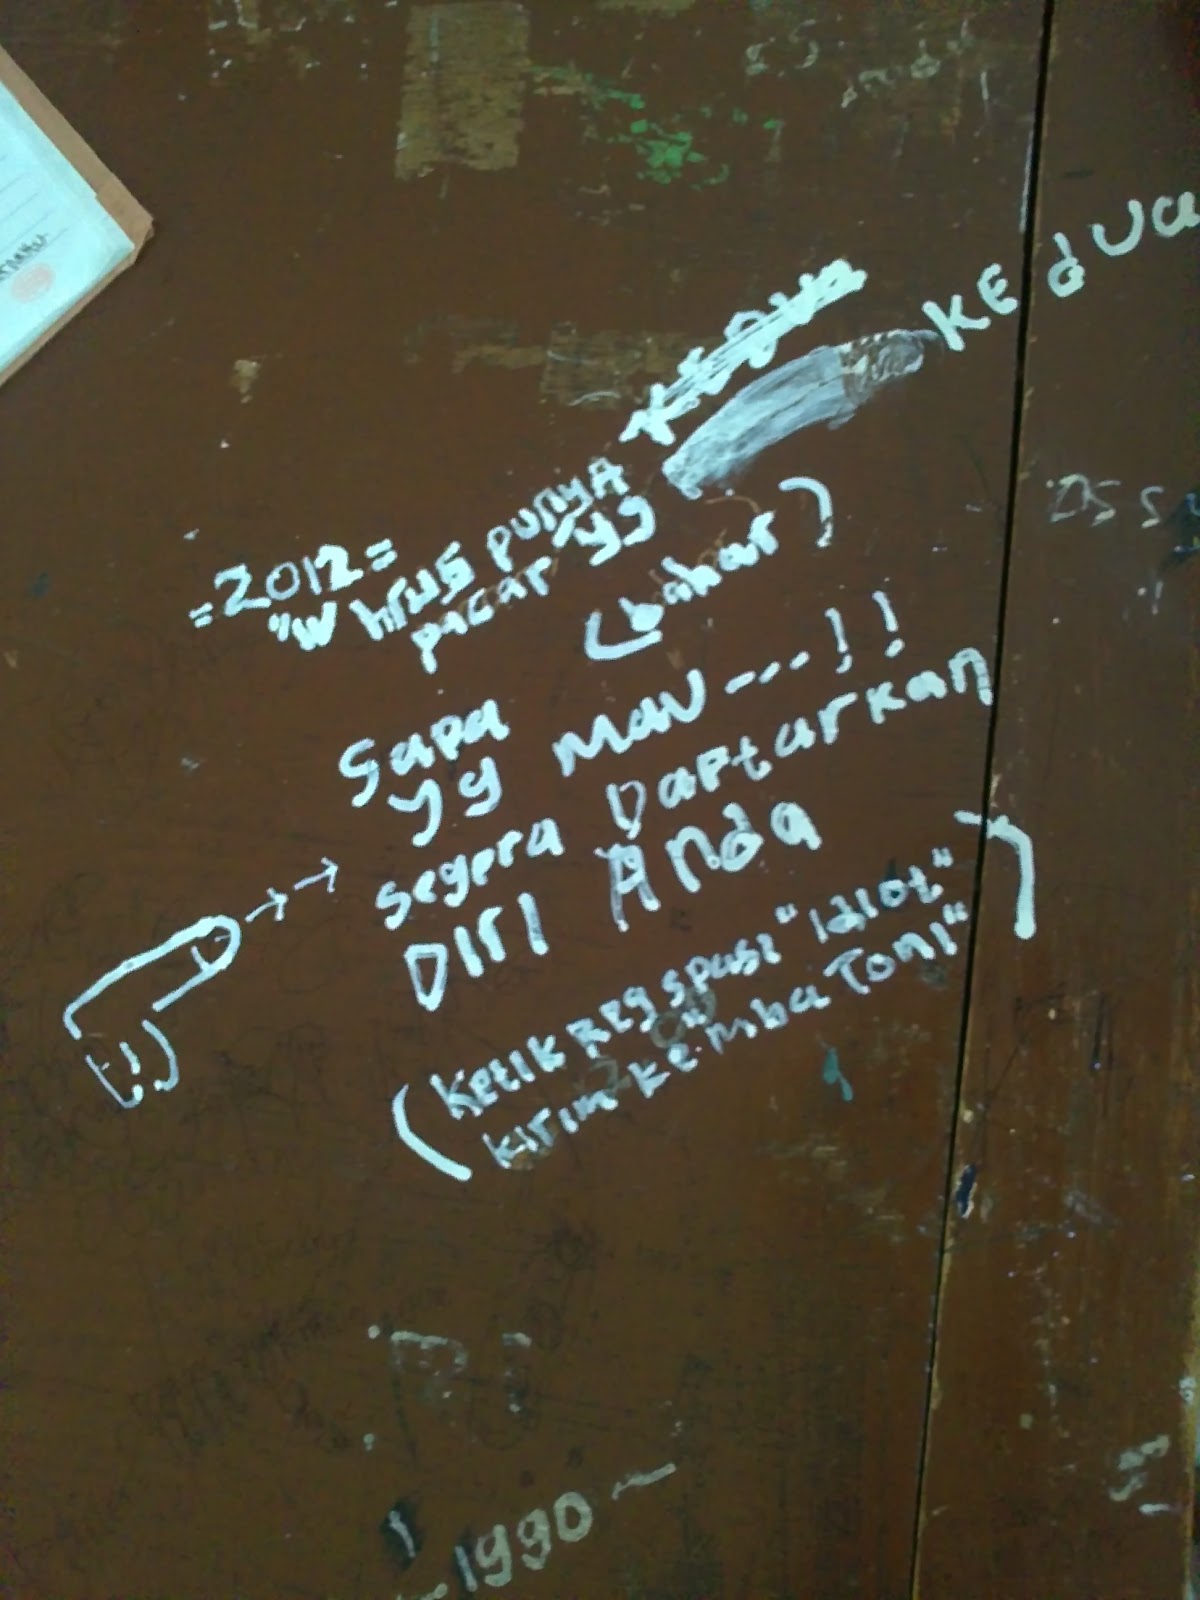 =2012=
"W hrus punyA KEDUA
pacar yg KEdUa
(bahar)
Sapa
yg mau ---!!
segera Daftarkan
DIrI Anda
(Ketik Reg spasi "Idiot"
kirim ke "mba Toni")
-1990-